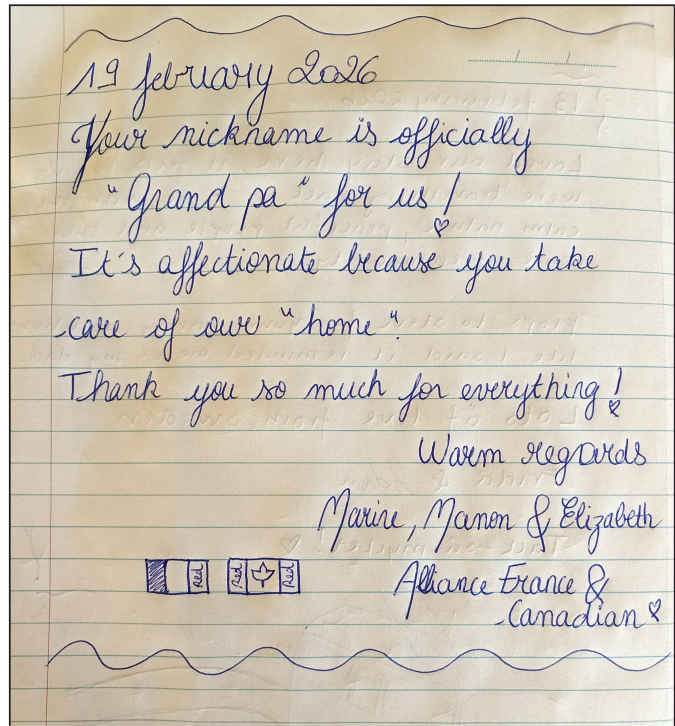 19 february 2026
Your nickname is officially
"Grand pa" for us !
It's affectionate because you take
care of our "home".
Thank you so much for everything !
Warm regards
Marine, Manon & Elizabeth
Red Red Red
Alliance France &
Canadian